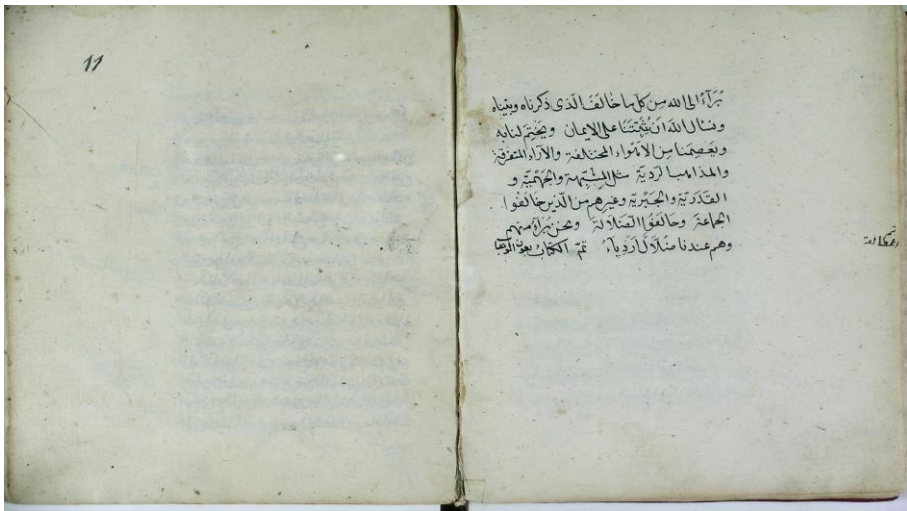 بُرَآءُ الى الله من كل ما خالف الذى ذكرناه وبيناه
ونسال الله ان يُثَبِّتَنَا على الايمان ويَختِم لنا به
ويَعصِمَنا من الاهواء المختلفة والآراء المتفرقة
والمذاهب الردية مثل المشبّهة والجَهْمِيَّة و
القَدَرِيّة والجَبْرِيّة وغيرهم من الّذين خالَفُوا
الجماعَة وحالَفُوا الضَلالَةَ ونحن بُرَآءُ منهم
وهم عندنا ضُلَّالٌ اَرْدِياءُ تمّ الكتاب بعون
11